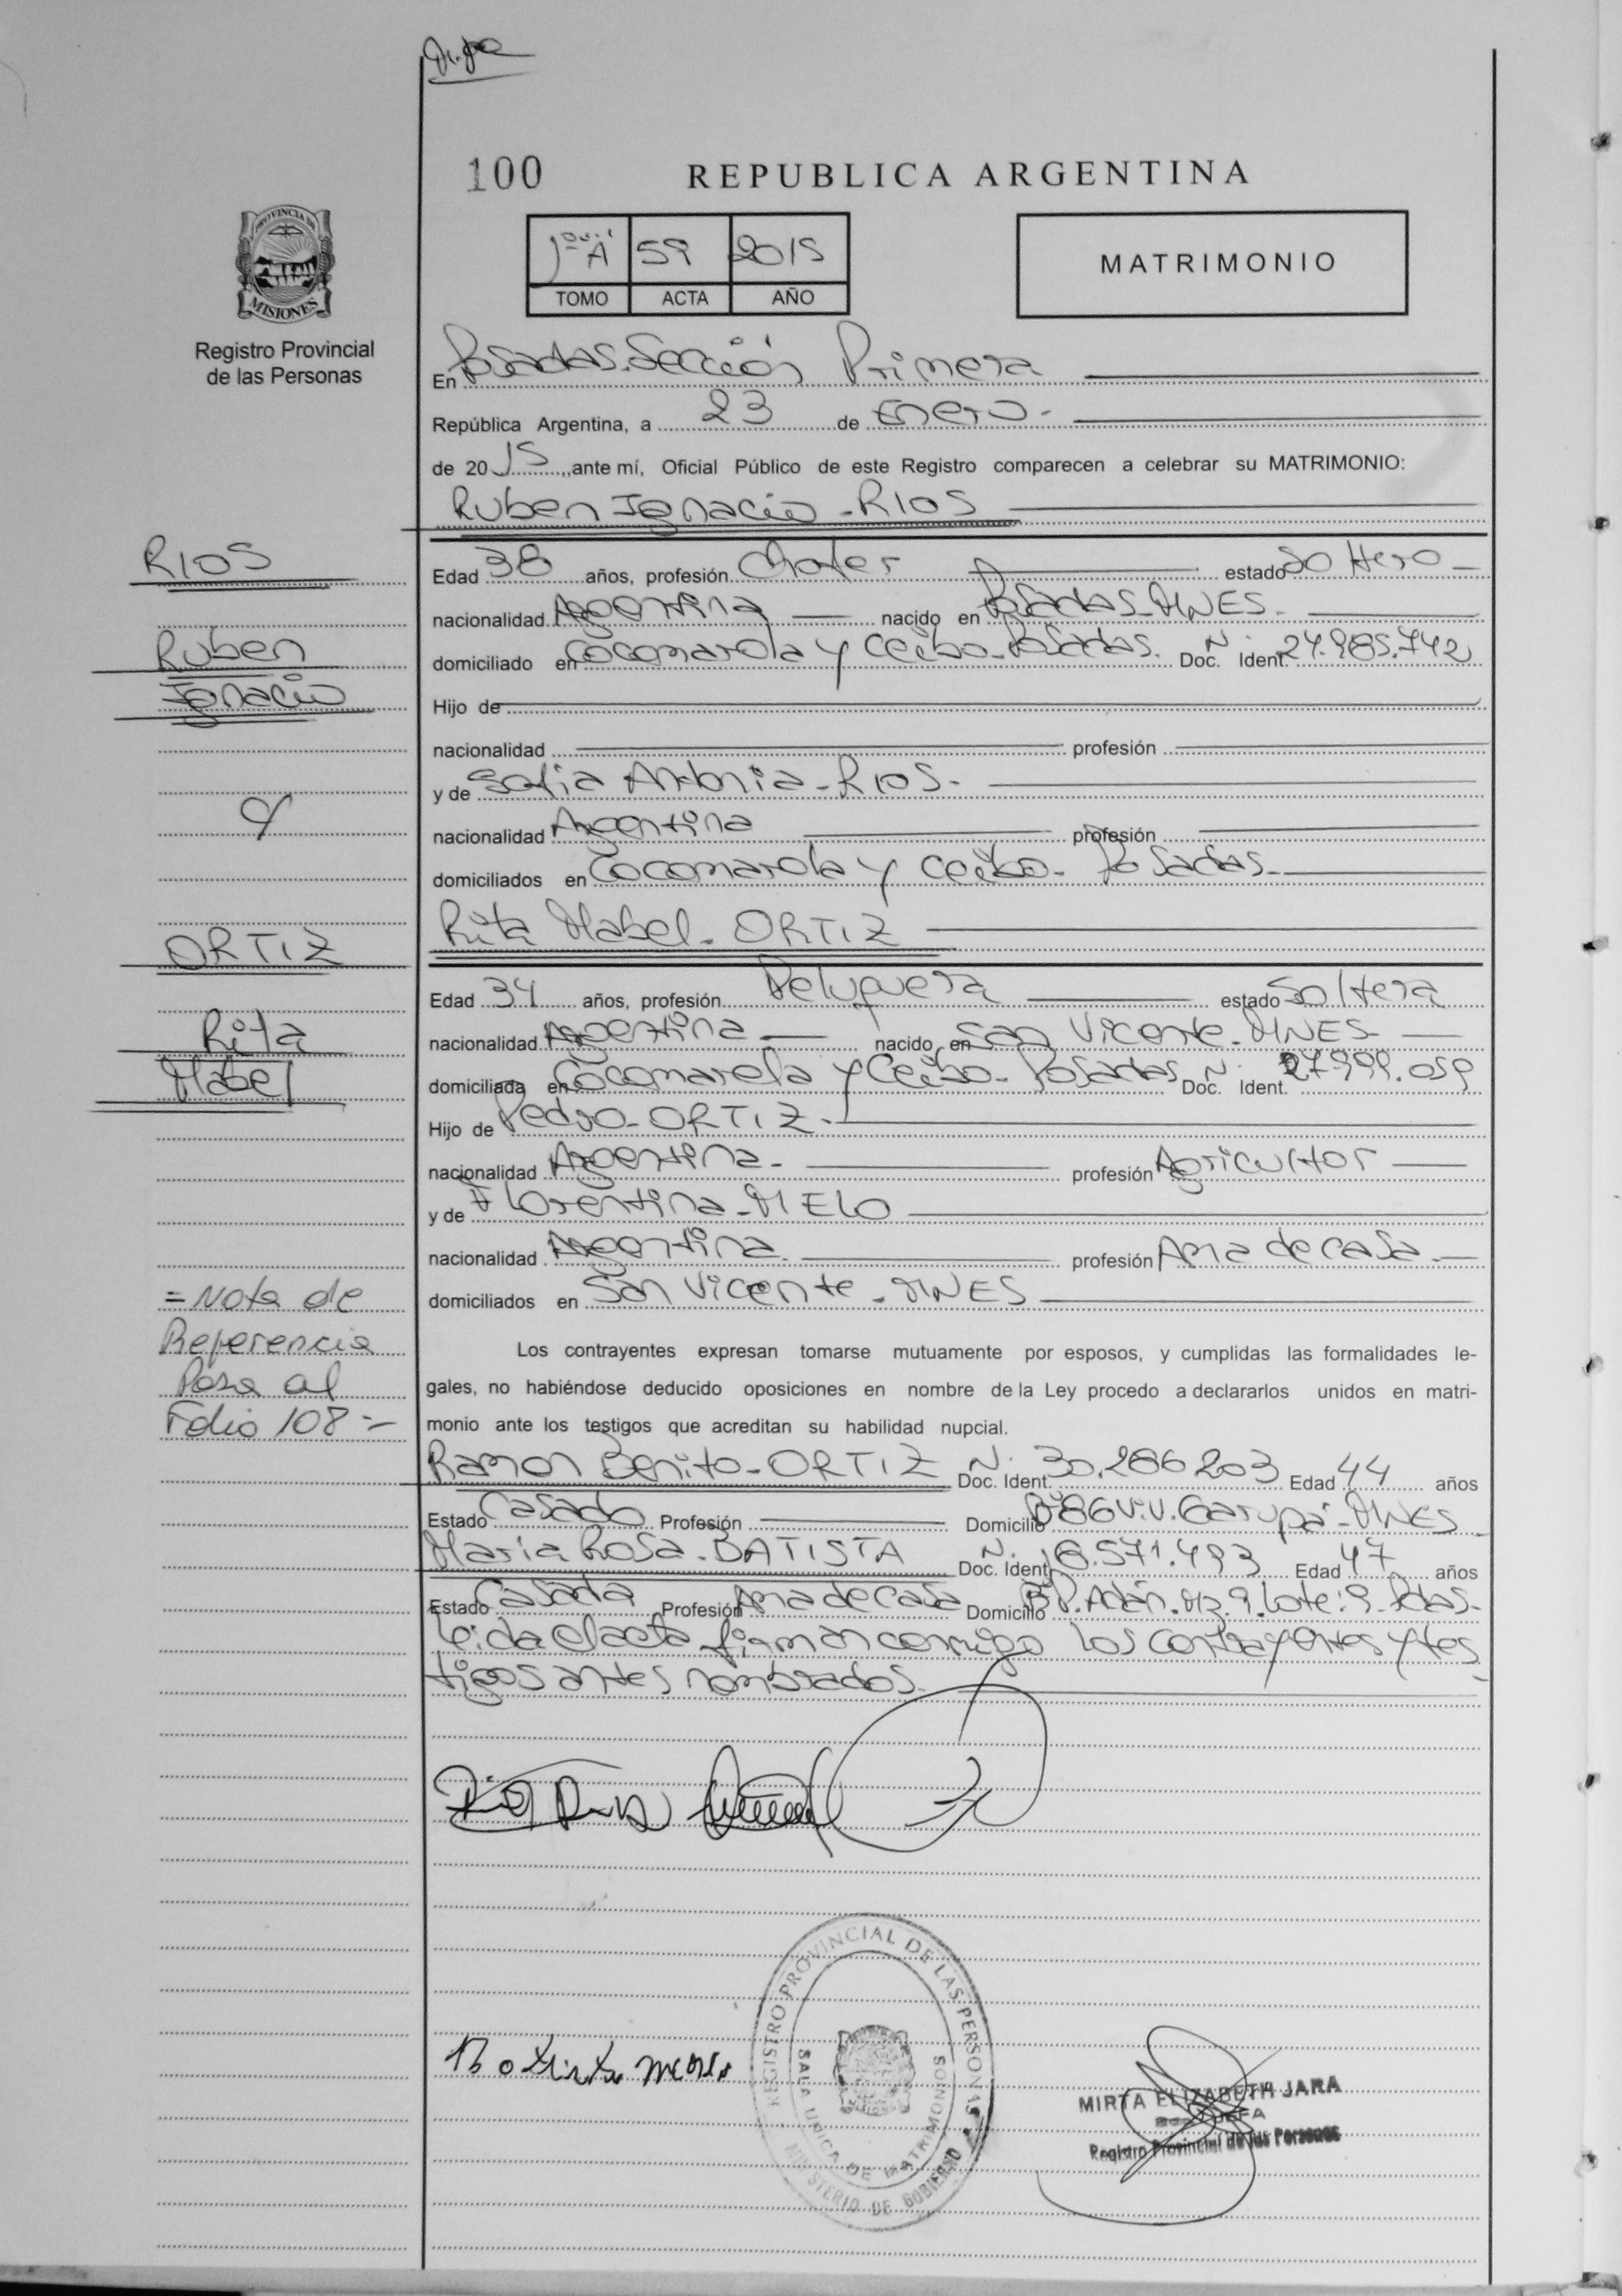 100 REPUBLICA ARGENTINA
59 2015
TOMO ACTA AÑO
MATRIMONIO
PROVINCIA DE
MISIONES
Registro Provincial
de las Personas
En Posadas. Sección Primera
República Argentina, a 23 de Enero-
de 2015, ante mí, Oficial Público de este Registro comparecen a celebrar su MATRIMONIO:
Ruben Ignacio - RIOS
RIOS
Ruben
Ignacio
Edad 38 años, profesión Chofer estado Soltero
nacionalidad Argentina nacido en Posadas - MNES.
domiciliado en Cocomarola y Ceibo - Posadas. Doc. Ident. N. 24.985.742
Hijo de
nacionalidad profesión
y de Sofia Antonia - RIOS-
nacionalidad Argentina profesión
domiciliados en Cocomarola y Ceibo - Posadas-
y
ORTIZ
Rita
Mabel
Rita Mabel - ORTIZ
Edad 34 años, profesión Peluquera estado Soltera
nacionalidad Argentina nacido en San Vicente - MNES-
domiciliada en Cocomarola y Ceibo - Posadas Doc. Ident. N. 27.999.059
Hijo de Pedro - ORTIZ-
nacionalidad Argentina- profesión Agricultor
y de Florentina - MELO
nacionalidad Argentina. profesión Ama de casa.
domiciliados en San Vicente - MNES
= Nota de
Referencia
Pasa al
Folio 108 =
Los contrayentes expresan tomarse mutuamente por esposos, y cumplidas las formalidades le-
gales, no habiéndose deducido oposiciones en nombre de la Ley procedo a declararlos unidos en matri-
monio ante los testigos que acreditan su habilidad nupcial.
Ramon Benito - ORTIZ Doc. Ident. N. 30.286.203 Edad 44 años
Estado Casado Profesión Domicilio Bº 86 Viv. Garupá - MNES
Maria Rosa - BATISTA Doc. Ident. N. 18.571.493 Edad 47 años
Estado Casada Profesión Ama de casa Domicilio Bº P. Adán. Mz. 9. Lote: 9. Pdas-
Leida el acta firman conmigo los contrayentes y tes
tigos antes nombrados.
REGISTRO PROVINCIAL DE LAS PERSONAS
SALA UNICA DE MATRIMONIOS
MINISTERIO DE GOBIERNO
MIRTA ELIZABETH JARA
Registro Provincial de las Personas